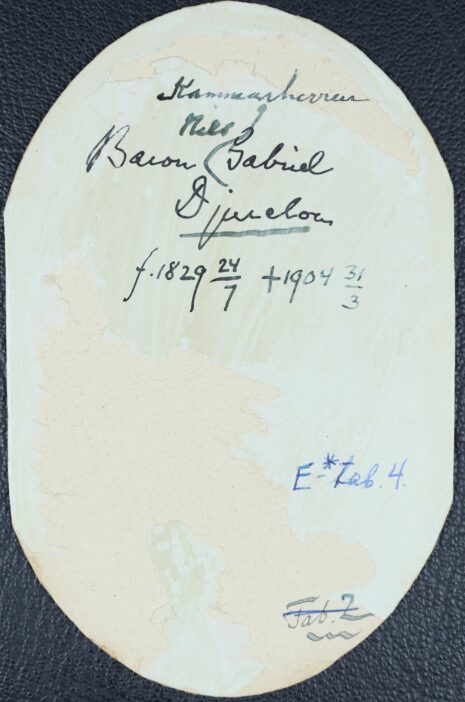 Kammarherren
Nils
Baron Gabriel
Djurclou
f. 1829 24/7 +1904 31/3
E-*Tab. 4.
Tab. 2